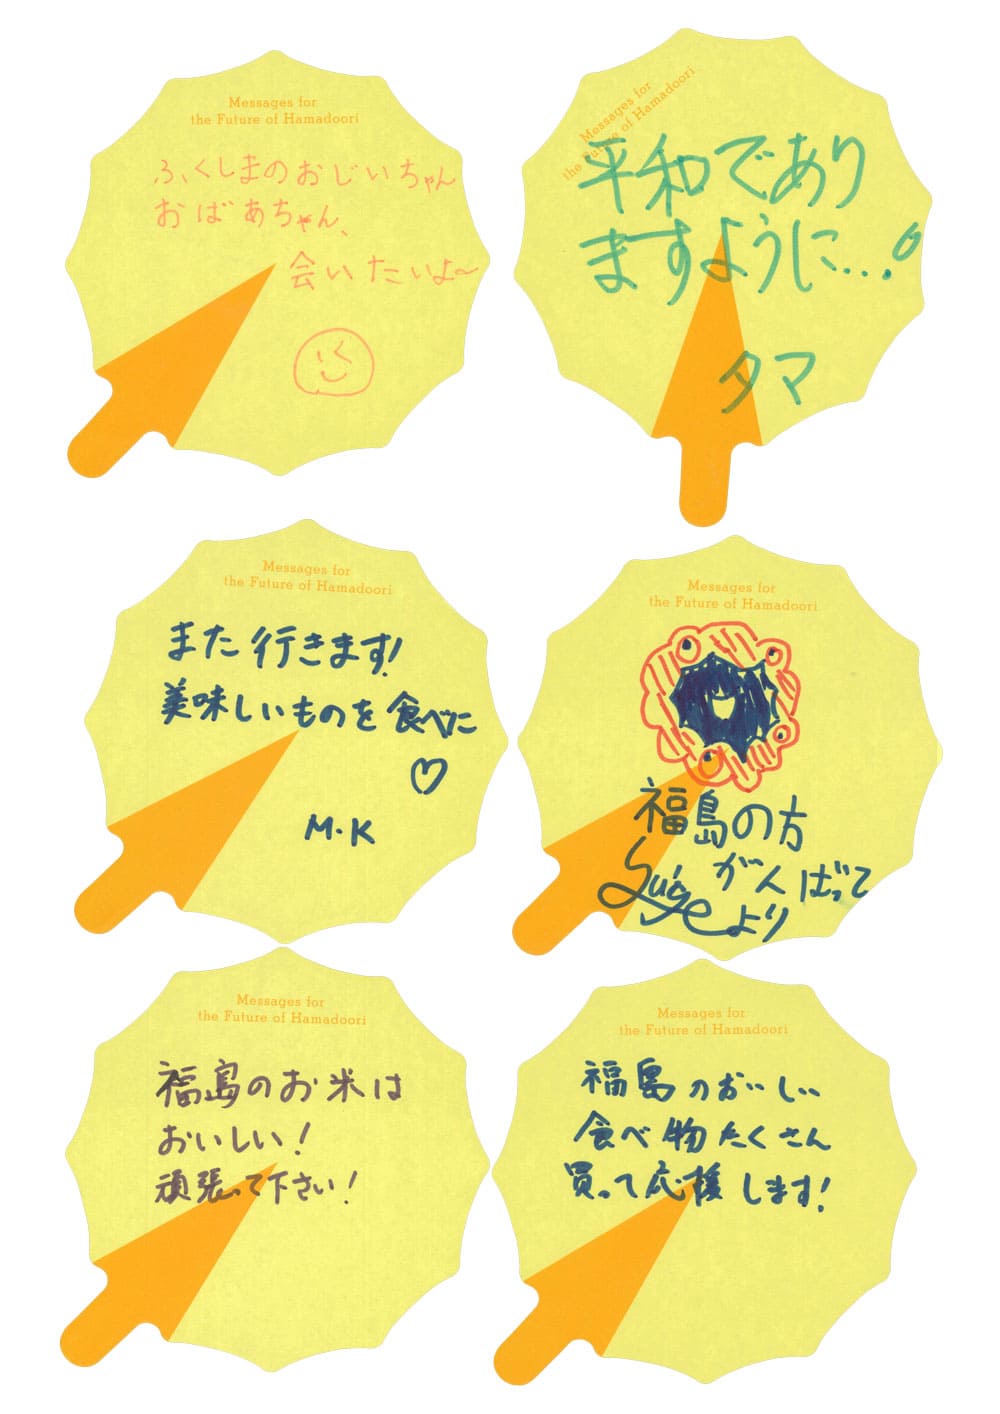 Messages for
the Future of Hamadoori
ふくしまのおじいちゃん
おばあちゃん、
会いたいよ〜
Messages for
the Future of Hamadoori
平和であり
ますように...!
タマ
Messages for
the Future of Hamadoori
また行きます!
美味しいものを食べに
♡
M.K
Messages for
the Future of Hamadoori
福島の方
がんばって
より
Messages for
the Future of Hamadoori
福島のお米は
おいしい!
頑張って下さい!
Messages for
the Future of Hamadoori
福島のおいしい
食べ物たくさん
買って応援します!